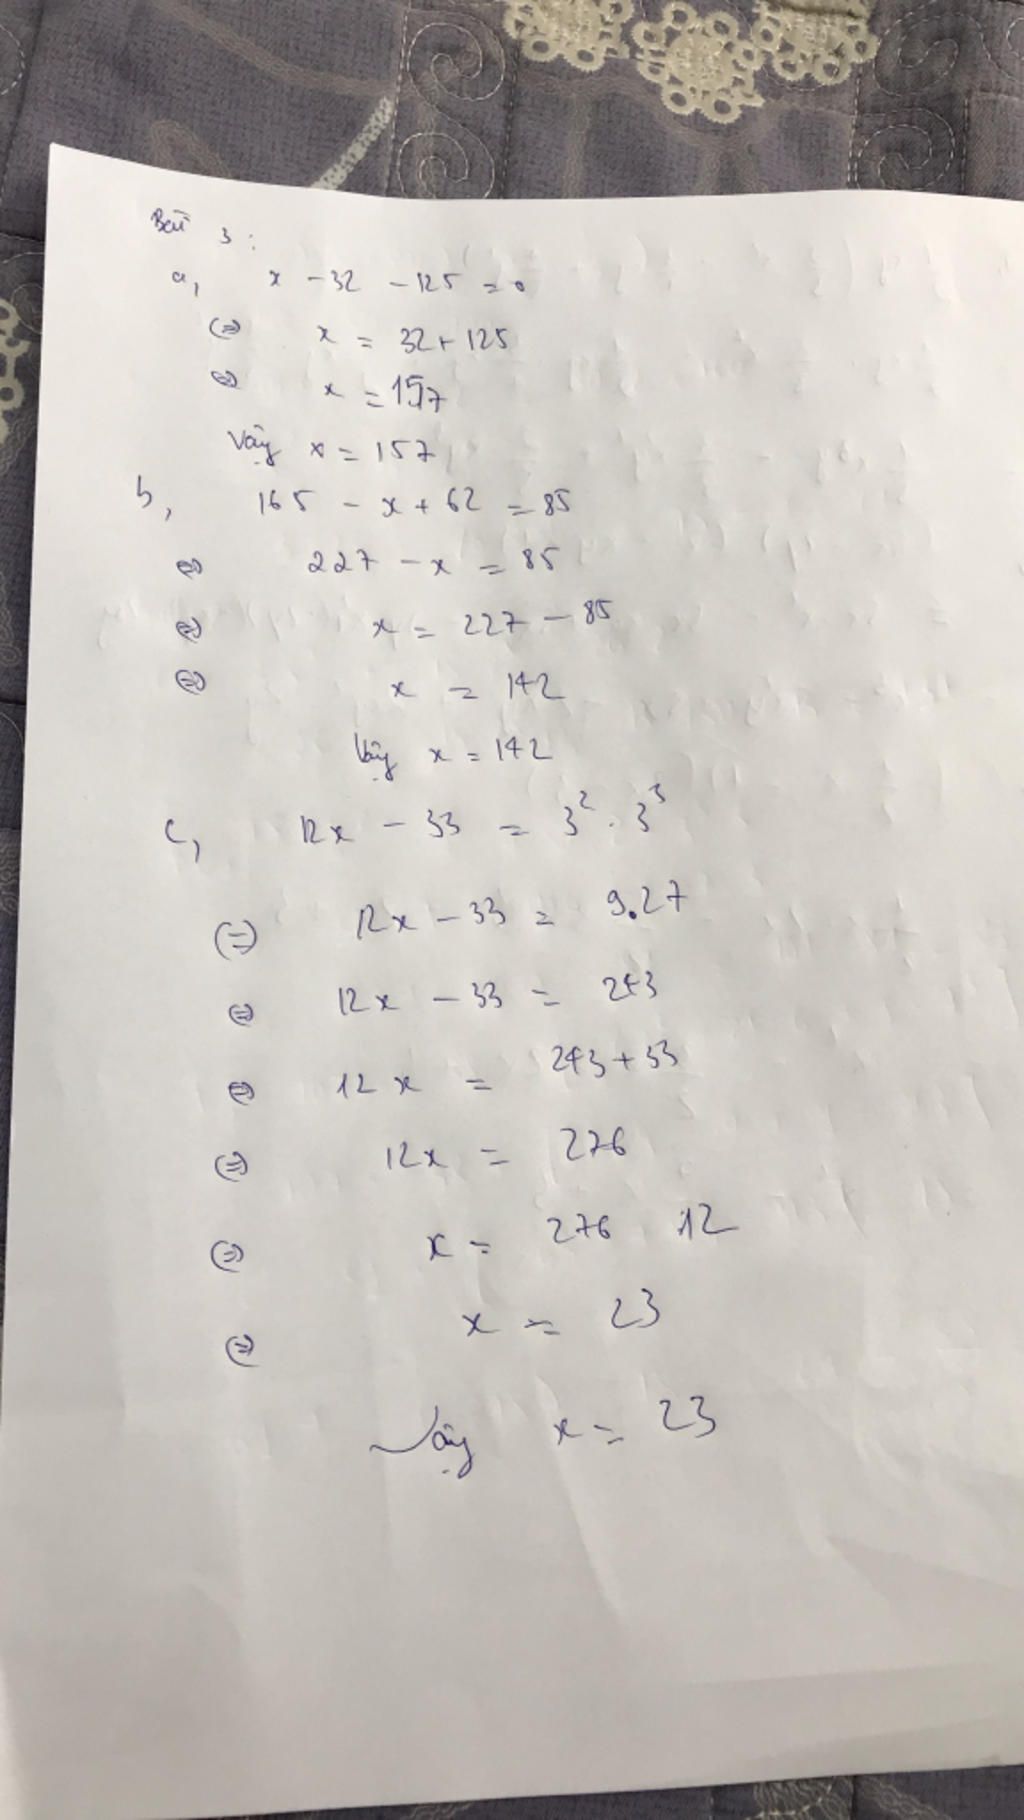 Bài 3:
a, x - 32 - 125 = 0
(=) x = 32 + 125
(=) x = 157
Vậy x = 157
b, 165 - x + 62 = 85
(=) 227 - x = 85
(=) x = 227 - 85
(=) x = 142
Vậy x = 142
c, 12x - 33 = 3² . 3³
(=) 12x - 33 = 9.27
(=) 12x - 33 = 243
(=) 12x = 243 + 33
(=) 12x = 276
(=) x = 276 12
(=) x = 23
Vậy x = 23